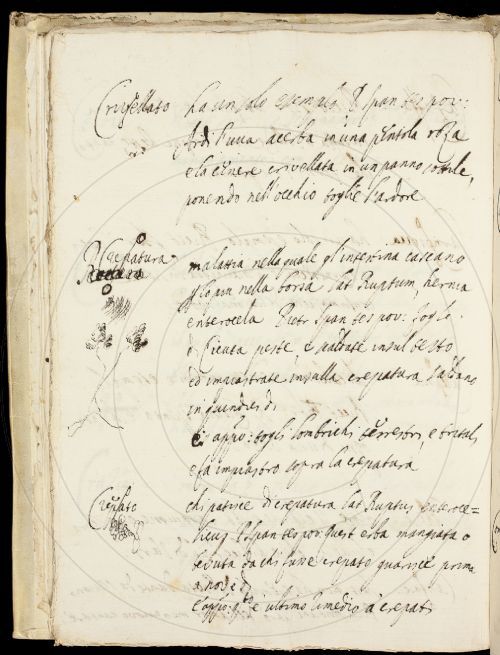 Crivellato ha un solo esempio Span tes pov:
Ardi l'uva acerba in una pentola roza
e la cenere crivellata in un panno sottile,
ponendo nell'occhio toglie l'ardore
Crepatura malattia nella quale gl'intestina cascano
nella borsa lat Ruptum, hernia
enterocela Pietr Span tes pov: togle
di Cicuta peste, e insul testo
ed impiastrate in sulla crepatura saldano
in quindici di
e appo: togli lombrichi terrestri, e
e fa impiastro sopra la crepatura
Crepato chi patisce di crepatura lat Ruptus enteroce=
licus Span tes pov: Quest erba mangiata o
bevuta da chi fusse crepato guarisce prima
a nove di
e appo: e ultimo rimedio a crepati